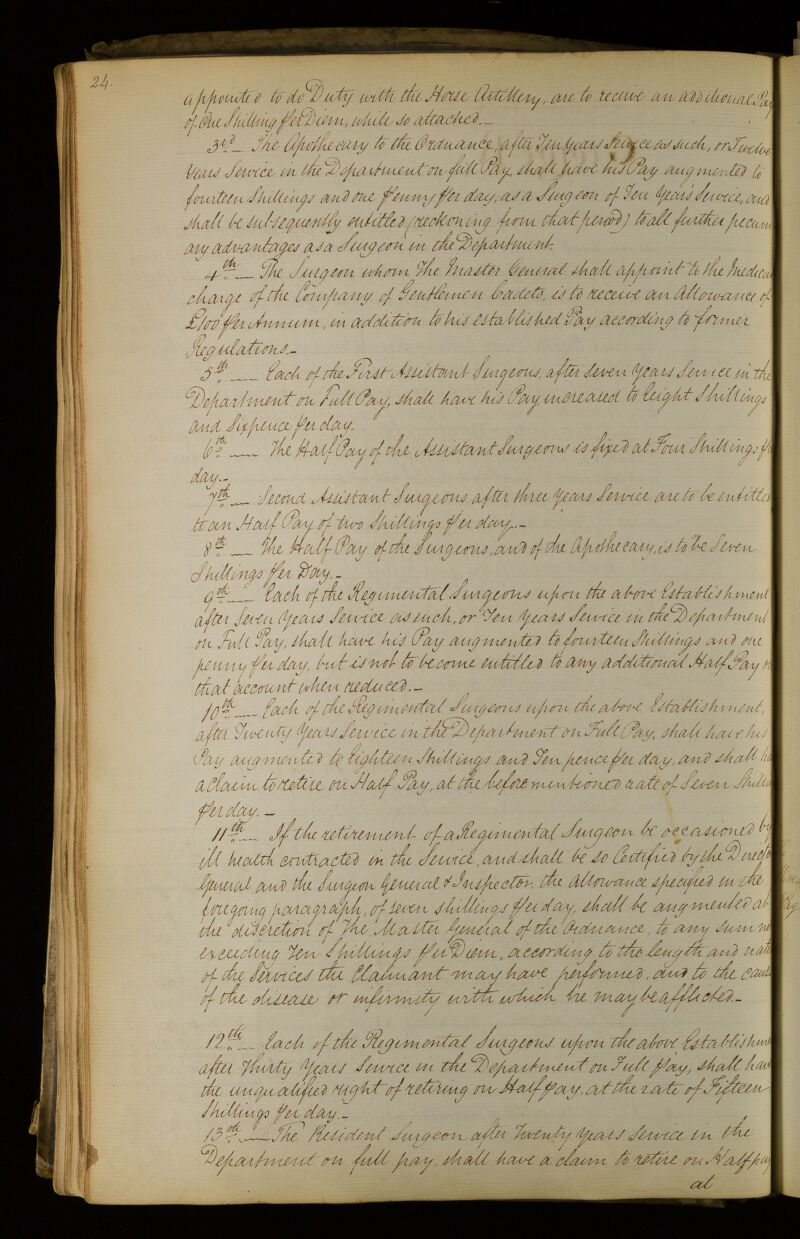 24.
appointed to do Duty with the Horse Artillery, are to receive an additional Pay
of One Shilling per Diem, while so attached._
3rd_ The Apothecary to the Ordnance, after Ten years Service as such, or Twelve
Years Service in the Department on full Pay, shall have his Pay augmented to
fourteen Shillings and one penny per day, as a Surgeon of Ten Years Service, and
shall be subsequently entitled (reckoning from that period) to all further pecuni
ary advantages as a Surgeon in the Department.
4th_ The Surgeon whom The Master General shall appoint to the Medical
charge of the Company of Gentlemen Cadets, is to receive an Allowance of
£100 per Annum, in addition to his established Pay according to former
Regulations._
5th_ Each of the First Assistant Surgeons, after Seven Years Service in the
Department on Full Pay, shall have his Pay increased to Eight Shillings
and Sixpence per day.
6th_ The Half Pay of the Assistant Surgeons is fixed at Four Shillings p
day._
7th_ Second Assistant Surgeons after three years Service are to be entitled
to an Half Pay of two Shillings per day._
8th_ The Half Pay of the Surgeons, and of the Apothecary, is to be Seven
Shillings per Day._
9th_ Each of the Regimental Surgeons upon the above Establishment
after Seven Years Service as such, or Ten Years Service in the Department
on Full Pay, shall have his Pay augmented to fourteen Shillings and one
penny per day, but is not to become entitled to any additional Half Pay o
that account when reduced._
10th_ Each of the Regimental Surgeons upon the above Establishment,
after Twenty Years Service in the Department on Full Pay, shall have his
Pay augmented to Eighteen Shillings and Ten pence per day, and shall ha
a Claim to retire on Half Pay, at the before mentioned rate of Seven Shilli
per day._
11th_ If the retirement of a Regimental Surgeon be occasioned by
ill health contracted in the Service, and shall be so Certified by the Director
General and the Surgeon General & Inspector, the Allowance specified in the
foregoing paragraph, of seven shillings per day, shall be augmented at
the discretion of The Master General of the Ordnance, to any Sum no
exceeding Ten Shillings per Diem, according to the length and nat
of the Services the Claimant may have performed, and to the Caus
of the disease or infirmity with which he may be afflicted._
12th_ Each of the Regimental Surgeons upon the above Establishm
after Thirty Years Service in the Department on Full Pay, shall have
the unqualified right of retiring on Half pay, at the rate of Fifteen
Shillings per day._
13th_ The Resident Surgeon after Twenty Years Service in the
Department on full pay, shall have a claim to retire on Half pay
at